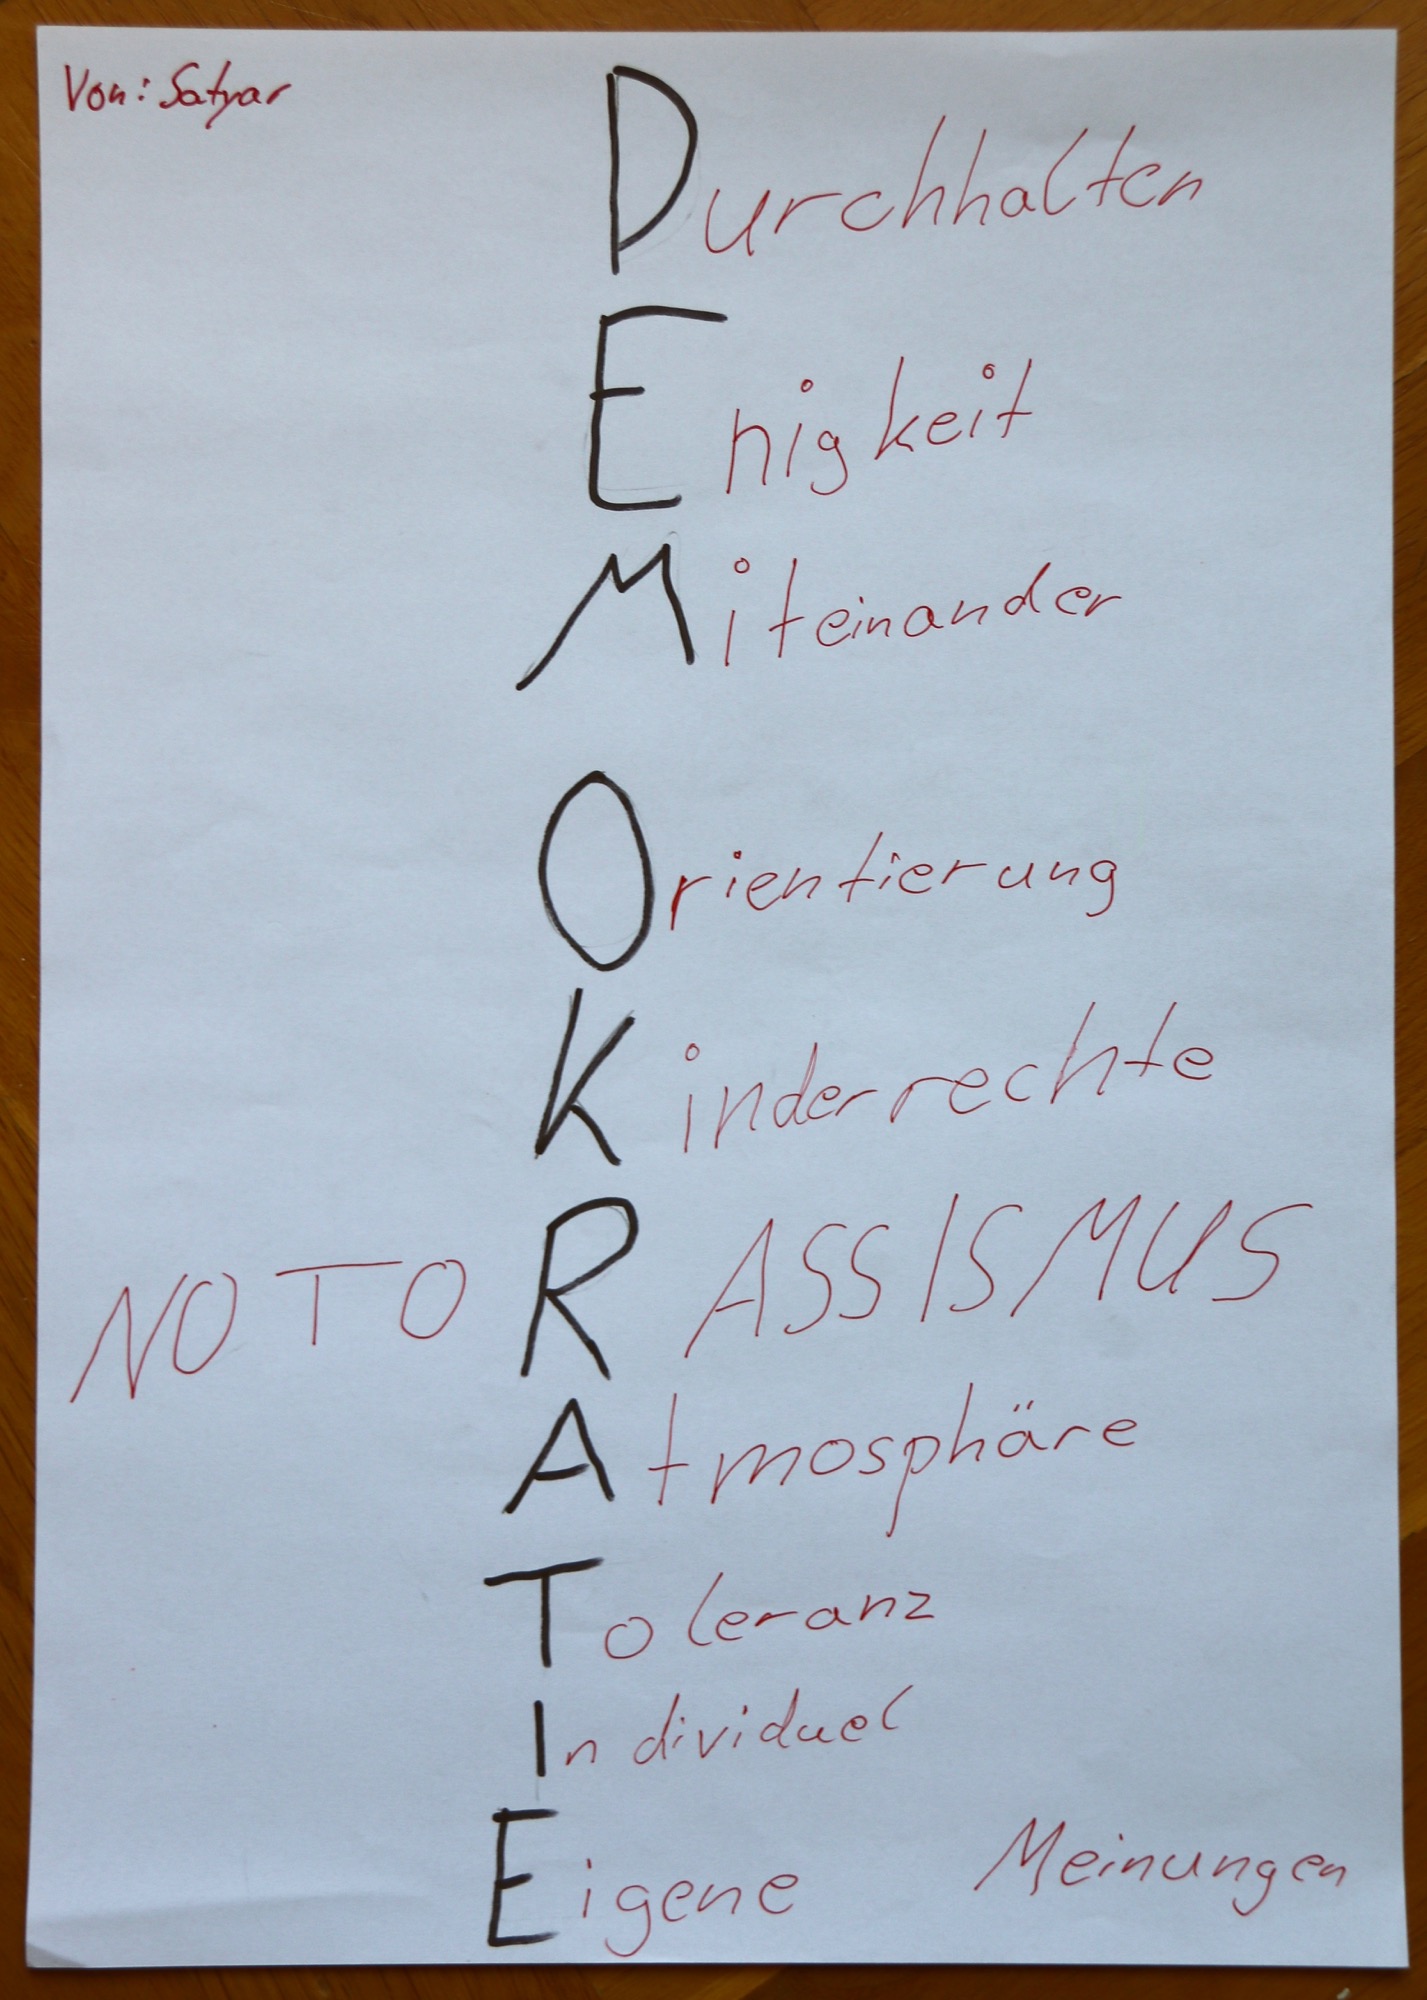 Von: Satyar
Durchhalten
Enigkeit
Miteinander
Orientierung
Kinderrechte
NO TO RASSISMUS
Atmosphäre
Toleranz
Individuel
Eigene Meinungen